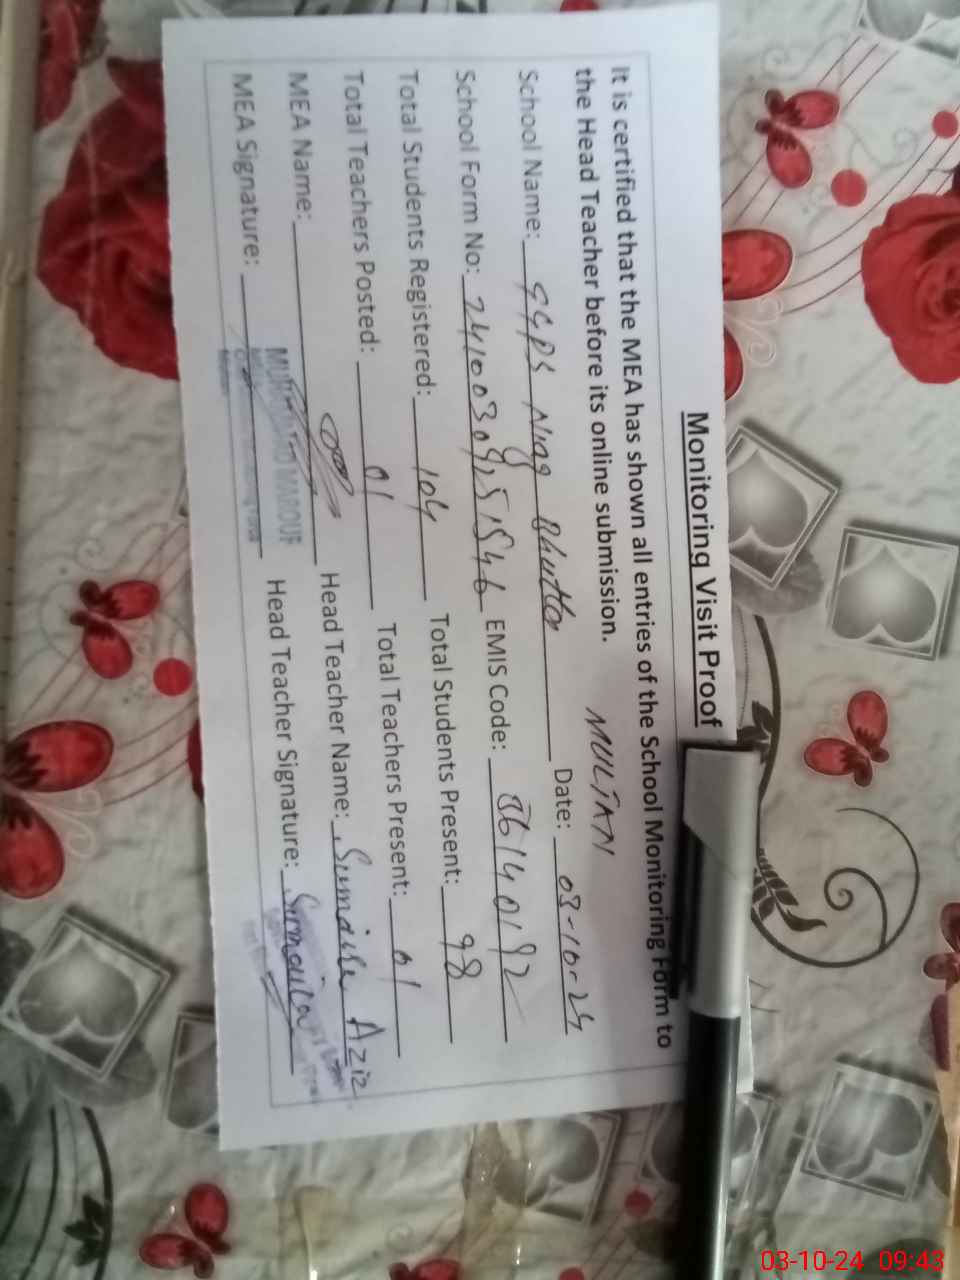 Monitoring Visit Proof
It is certified that the MEA has shown all entries of the School Monitoring Form to
the Head Teacher before its online submission.
MULTAN
School Name: GGPS Niag Bhutta Date: 03-10-24
School Form No: EMIS Code:
Total Students Registered: 104 Total Students Present: 98
Total Teachers Posted: 01 Total Teachers Present: 01
MEA Name: Head Teacher Name: Sumaira Aziz
MUHAMMAD MAROUF
MEA Signature: Head Teacher Signature: Sumaira
03-10-24 09:43